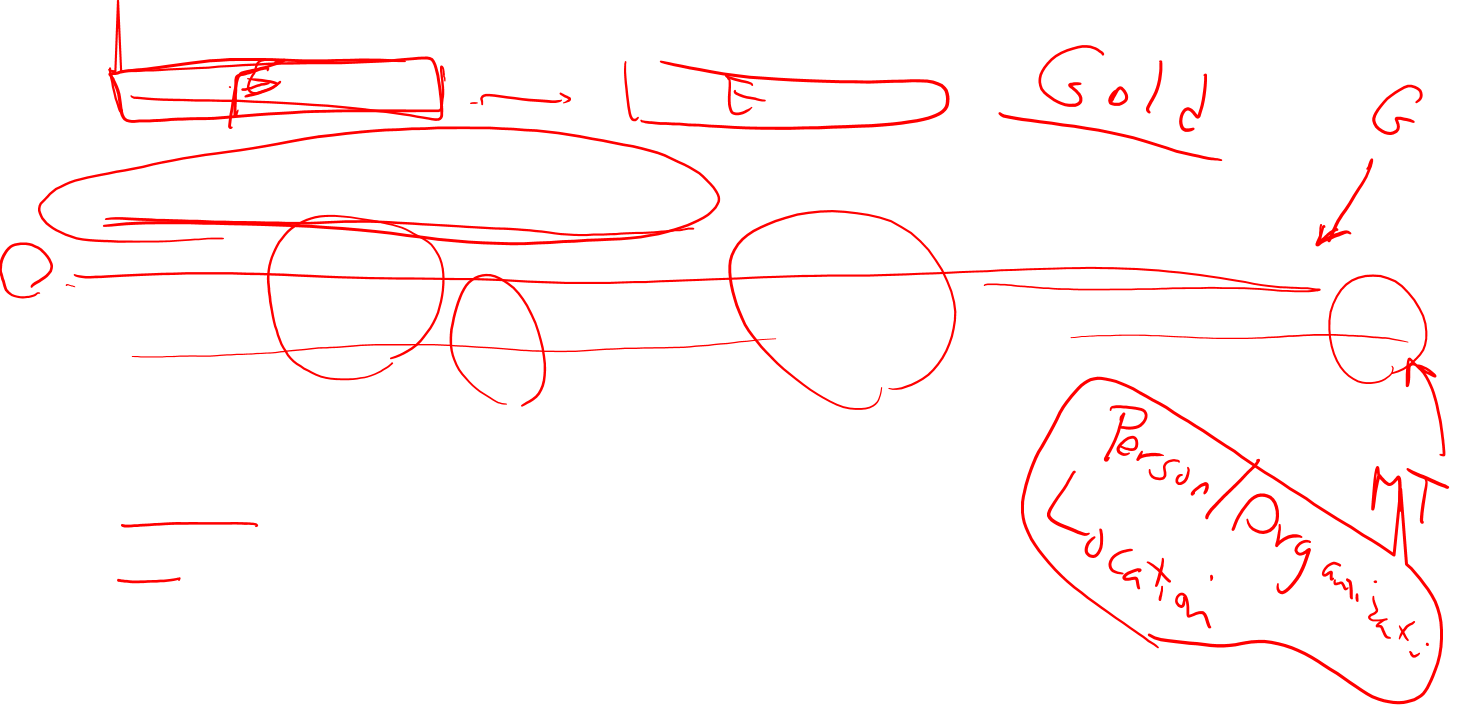 E E Gold
G
MT
Person/Organizati
Location